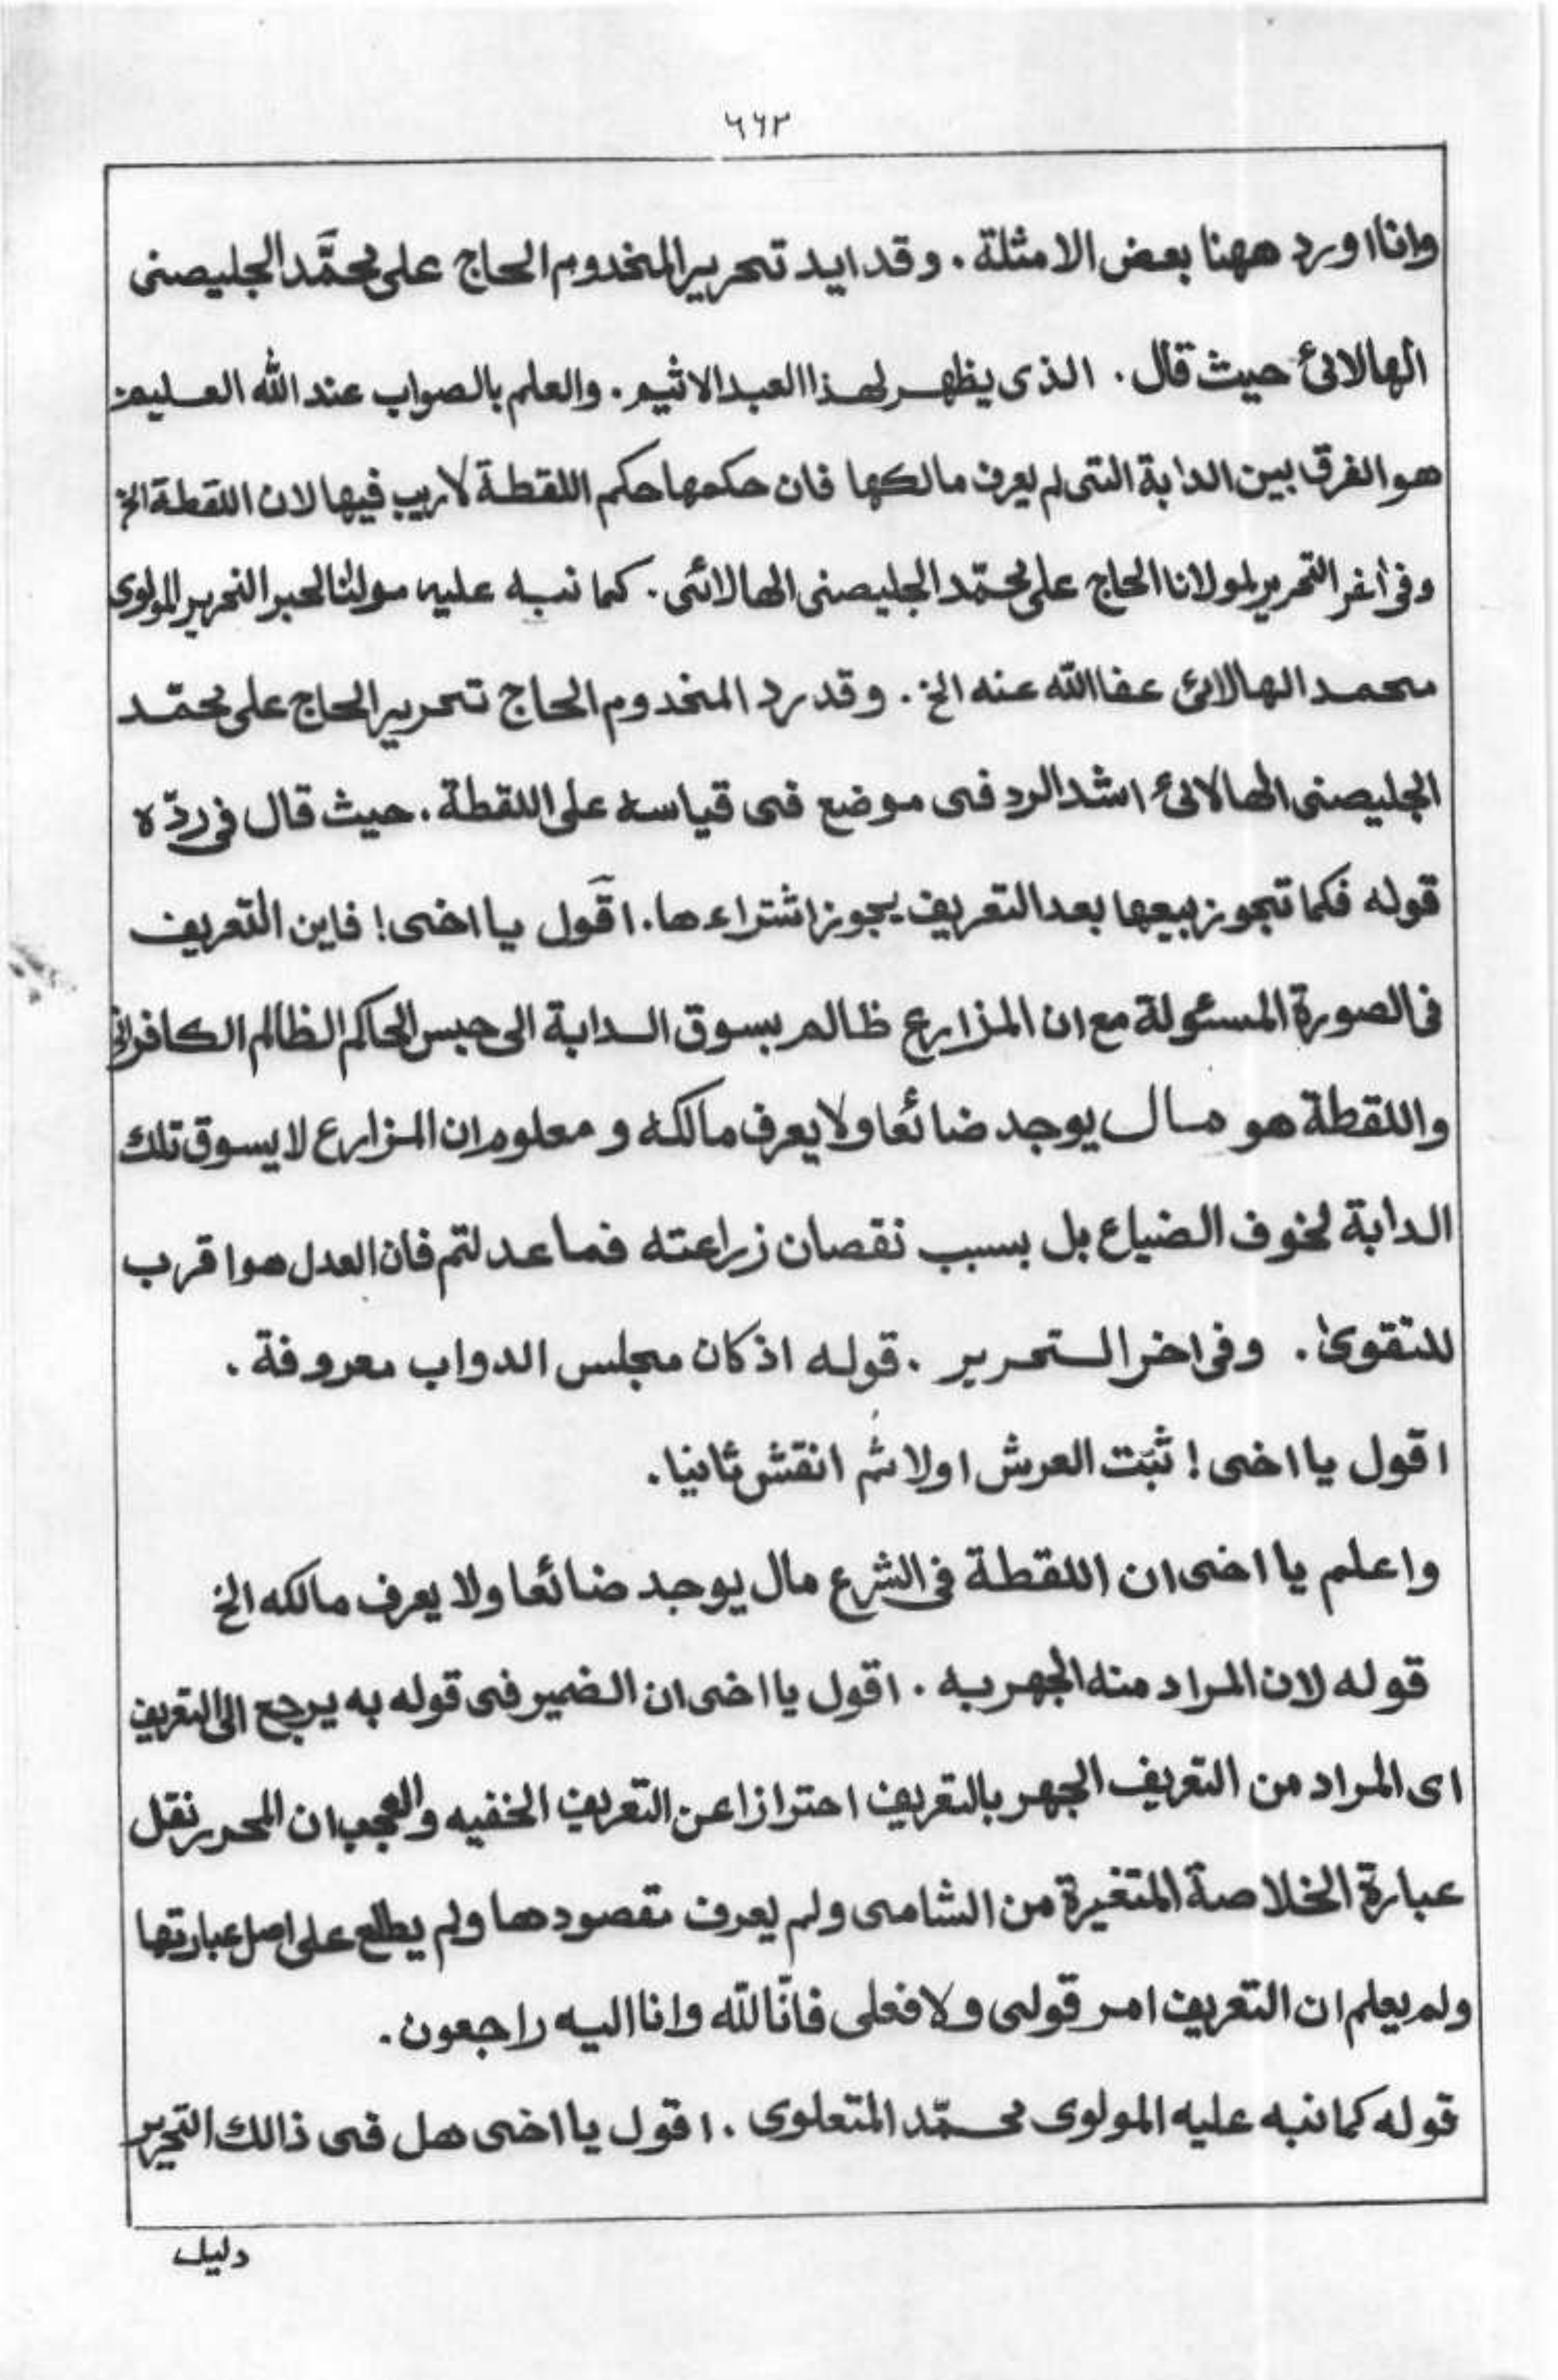 ٦٦٢
وانا اورد ههنا بعض الامثلة. وقد ايد تحرير المخدوم الحاج على محمّد الجليصنى
الهالائ حيث قال. الذى يظهر لهذا العبد الاثيم. والعلم بالصواب عند الله العليم
هو الفرق بين الدابة التى لم يعرف مالكها فان حكمها حكم اللقطة لاريب فيها لان اللقطة الخ
وفى اخر التحرير لمولانا الحاج على محمّد الجليصنى الهالائى. كما نبه عليه مولٰنا الحبر النحرير المولوى
محمد الهالائ عفا الله عنه الخ. وقد رد المخدوم الحاج تحرير الحاج على محمّد
الجليصنى الهالائ اشد الرد فى موضع فى قياسه على اللقطة. حيث قال فى ردّه
قوله فكما تجوز بيعها بعد التعريف يجوز اشتراءها. اقول يا اخى! فاين التعريف
فى الصورة المسئولة مع ان المزارع ظالم بسوق الدابة الى حبس الحاكم الظالم الكافر الخ
واللقطة هو مال يوجد ضائعا ولا يعرف مالكه و معلوم ان المزارع لا يسوق تلك
الدابة لخوف الضياع بل بسبب نقصان زراعته فما عدلتم فان العدل هو اقرب
للتقوىٰ. وفى اخر التحرير. قوله اذ كان مجلس الدواب معروفة.
اقول يا اخى! ثبّت العرش اولا ثم انقش ثانيا.
واعلم يا اخى ان اللقطة فى الشرع مال يوجد ضائعا ولا يعرف مالكه الخ
قوله لان المراد منه الجهر به. اقول يا اخى ان الضمير فى قوله به يرجع الى التعريف
اى المراد من التعريف الجهر بالتعريف احترازا عن التعريف الخفيه والعجب ان المحرر نقل
عبارة الخلاصة المتغيرة من الشامى ولم يعرف مقصودها ولم يطلع على اصل عبارتها
ولم يعلم ان التعريف امر قولى ولا فعلى فانّا لله وانا اليه راجعون.
قوله كما نبه عليه المولوى محمّد المتعلوى. اقول يا اخى هل فى ذالك التحرير
دليل